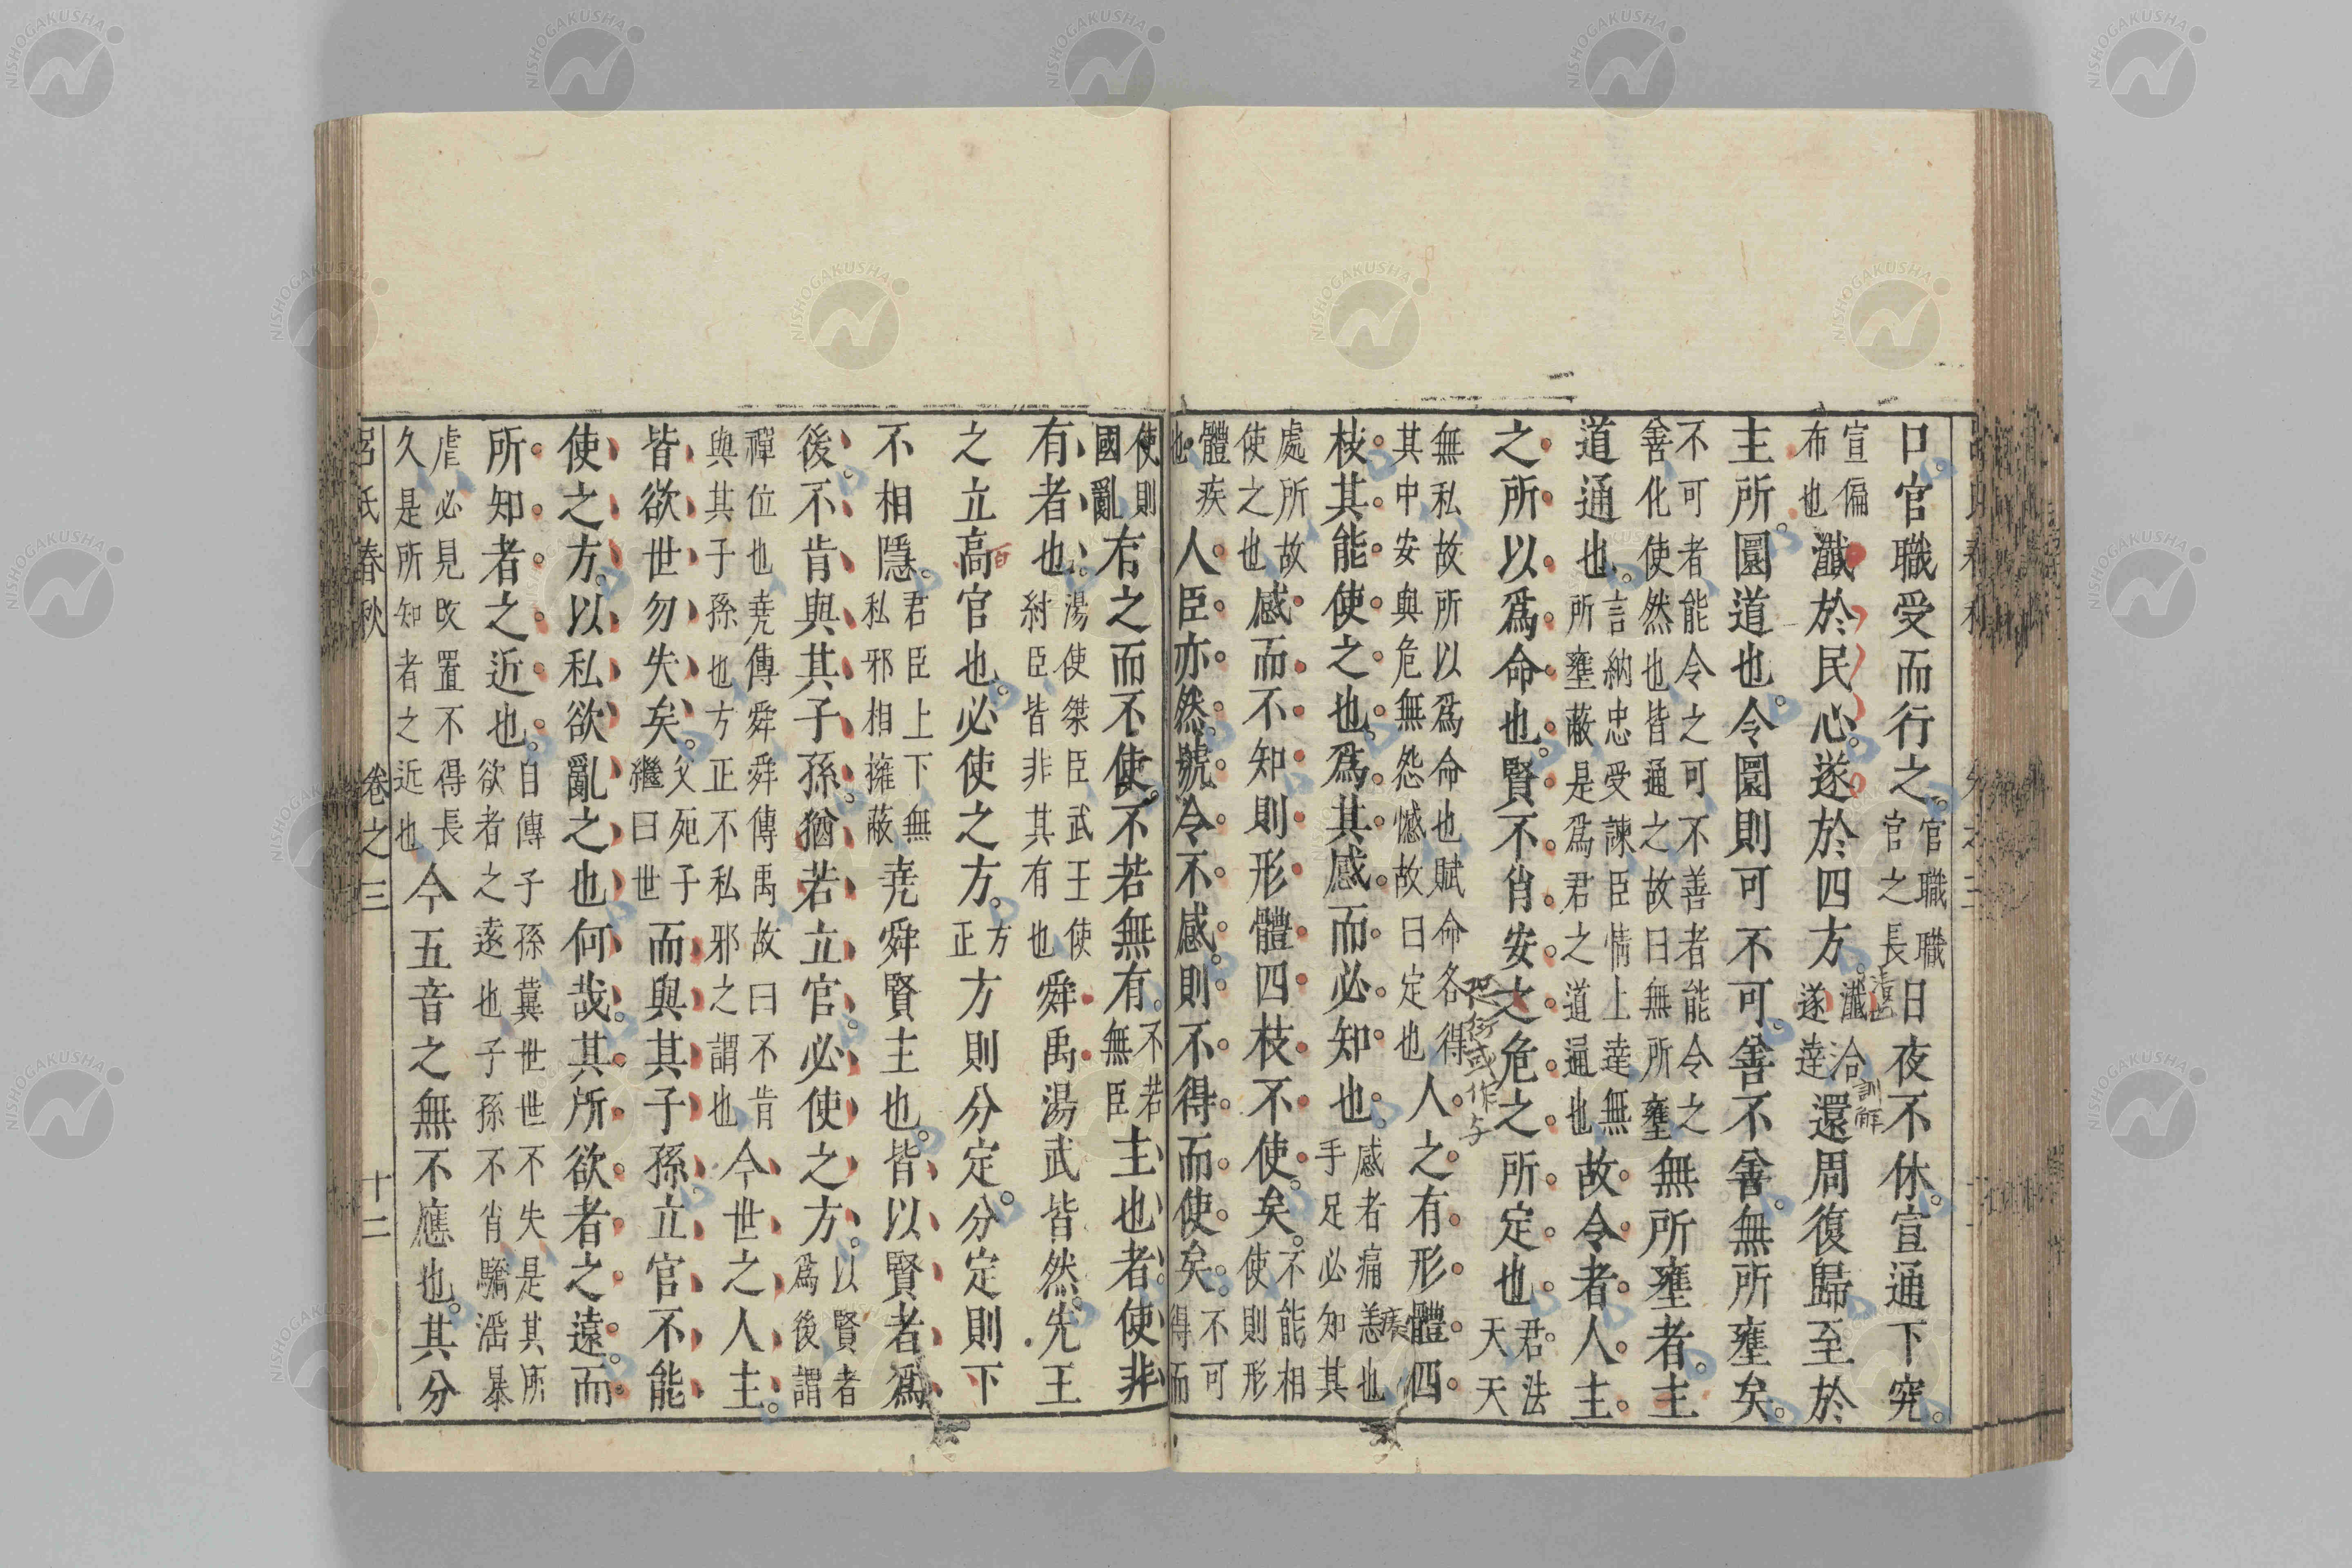 口官職受而行之官職職官之長日夜不休宣通下究
宣徧布也瀸於民心遂於四方瀸洽遂達還周復歸至於
主所圜道也令圜則可不可善不善無所壅矣
不可者能令之可不善者能令之善化使然也皆通之故曰無所壅無所壅者主
道通也言納忠受諫臣情上達無所壅蔽是爲君之道通也故令者人主
之所以爲命也賢不肖安之危之所定也君法天天
無私故所以爲命也賦命各得其中安與危無怨憾故曰定也人之有形體四
枝其能使之也爲其感而必知也感者痛恙也手足必知其
處所故使之也感而不知則形體四枝不使矣不能相使則形
體疾也人臣亦然號令不感則不得而使矣不可得而
使則國亂有之而不使不若無有不若無臣主也者使非
有者也湯使桀臣武王使紂臣皆非其有也舜禹湯武皆然先王
之立高官也必使之方方正方則分定分定則下
不相隱君臣上下無私邪相擁蔽堯舜賢主也皆以賢者爲
後不肯與其子孫猶若立官必使之方以賢者爲後謂
禪位也堯傳舜舜傳禹故曰不肯與其子孫也方正不私邪之謂也今世之人主
皆欲世勿失矣父死子繼曰世而與其子孫立官不能
使之方以私欲亂之也何哉其所欲者之遠而
所知者之近也自傳子孫冀世世不失是其所欲者之遠也子孫不肖驕淫暴
虐必見改置不得長久是所知者之近也今五音之無不應也其分
呂氏春秋 卷之三 十二
百
恐衍或作与
訓解